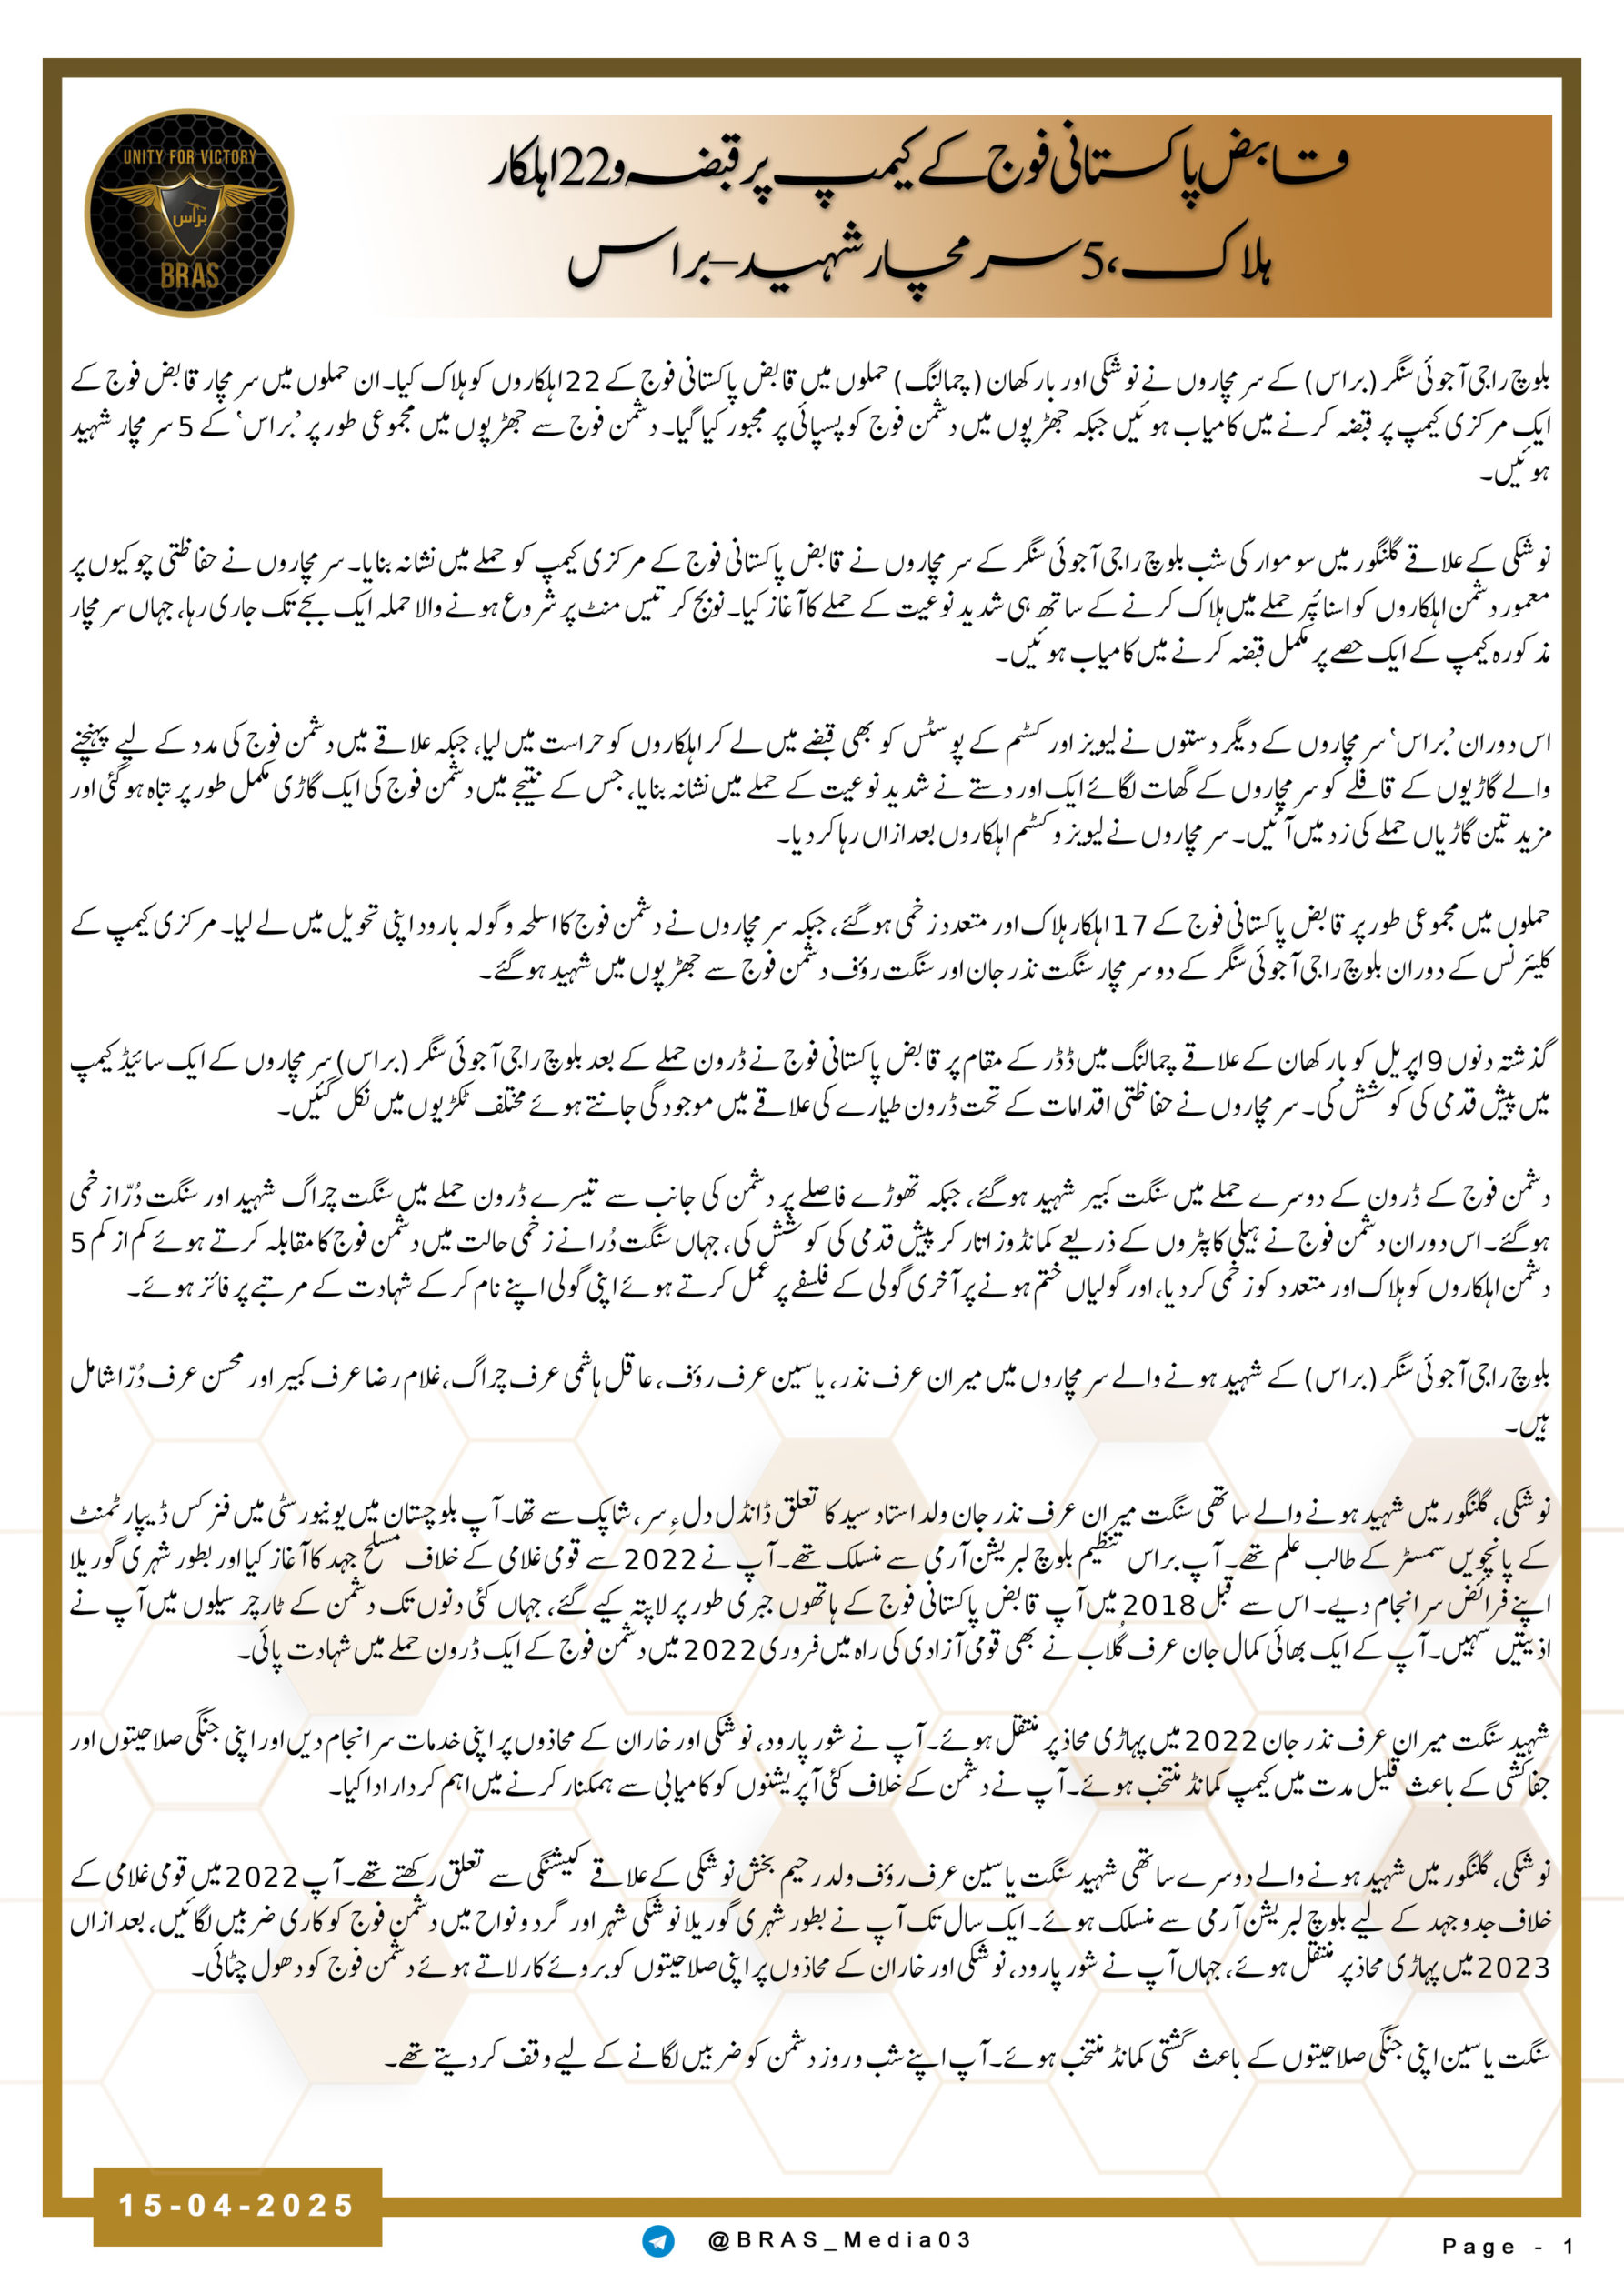 UNITY FOR VICTORY
براس
BRAS
قابض پاکستانی فوج کے کیمپ پر قبضہ و 22 اہلکار
ہلاک، 5 سرمچار شہید – براس
بلوچ راجی آجوئی سنگر (براس) کے سرمچاروں نے نوشکی اور بارکھان (چمالنگ) حملوں میں قابض پاکستانی فوج کے 22 اہلکاروں کو ہلاک کیا۔ ان حملوں میں سرمچار قابض فوج کے
ایک مرکزی کیمپ پر قبضہ کرنے میں کامیاب ہوئیں جبکہ جھڑپوں میں دشمن فوج کو پسپائی پر مجبور کیا گیا۔ دشمن فوج سے جھڑپوں میں مجموعی طور پر ’براس‘ کے 5 سرمچار شہید
ہوئیں۔
نوشکی کے علاقے گلنگور میں سوموار کی شب بلوچ راجی آجوئی سنگر کے سرمچاروں نے قابض پاکستانی فوج کے مرکزی کیمپ کو حملے میں نشانہ بنایا۔ سرمچاروں نے حفاظتی چوکیوں پر
معمور دشمن اہلکاروں کو اسنائپر حملے میں ہلاک کرنے کے ساتھ ہی شدید نوعیت کے حملے کا آغاز کیا۔ نو بج کر تیس منٹ پر شروع ہونے والا حملہ ایک بجے تک جاری رہا، جہاں سرمچار
مذکورہ کیمپ کے ایک حصے پر مکمل قبضہ کرنے میں کامیاب ہوئیں۔
اس دوران ’براس‘ سرمچاروں کے دیگر دستوں نے لیویز اور کسٹم کے پوسٹس کو بھی قبضے میں لے کر اہلکاروں کو حراست میں لیا، جبکہ علاقے میں دشمن فوج کی مدد کے لیے پہنچنے
والے گاڑیوں کے قافلے کو سرمچاروں کے گھات لگائے ایک اور دستے نے شدید نوعیت کے حملے میں نشانہ بنایا، جس کے نتیجے میں دشمن فوج کی ایک گاڑی مکمل طور پر تباہ ہوگئی اور
مزید تین گاڑیاں حملے کی زد میں آئیں۔ سرمچاروں نے لیویز و کسٹم اہلکاروں بعد ازاں رہا کردیا۔
حملوں میں مجموعی طور پر قابض پاکستانی فوج کے 17 اہلکار ہلاک اور متعدد زخمی ہوگئے، جبکہ سرمچاروں نے دشمن فوج کا اسلحہ و گولہ بارود اپنی تحویل میں لے لیا۔ مرکزی کیمپ کے
کلیئرنس کے دوران بلوچ راجی آجوئی سنگر کے دو سرمچار سنگت نذر جان اور سنگت رؤف دشمن فوج سے جھڑپوں میں شہید ہوگئے۔
گذشتہ دنوں 9 اپریل کو بارکھان کے علاقے چمالنگ میں ڈڈر کے مقام پر قابض پاکستانی فوج نے ڈرون حملے کے بعد بلوچ راجی آجوئی سنگر (براس) سرمچاروں کے ایک سائیڈ کیمپ
میں پیش قدمی کی کوشش کی۔ سرمچاروں نے حفاظتی اقدامات کے تحت ڈرون طیارے کی علاقے میں موجودگی جانتے ہوئے مختلف ٹکڑیوں میں نکل گئیں۔
دشمن فوج کے ڈرون کے دوسرے حملے میں سنگت کبیر شہید ہوگئے، جبکہ تھوڑے فاصلے پر دشمن کی جانب سے تیسرے ڈرون حملے میں سنگت چراگ شہید اور سنگت دُرّا زخمی
ہوگئے۔ اس دوران دشمن فوج نے ہیلی کاپٹروں کے ذریعے کمانڈوز اتار کر پیش قدمی کی کوشش کی، جہاں سنگت دُرا نے زخمی حالت میں دشمن فوج کا مقابلہ کرتے ہوئے کم از کم 5
دشمن اہلکاروں کو ہلاک اور متعدد کو زخمی کردیا، اور گولیاں ختم ہونے پر آخری گولی کے فلسفے پر عمل کرتے ہوئے اپنی گولی اپنے نام کرکے شہادت کے مرتبے پر فائز ہوئے۔
بلوچ راجی آجوئی سنگر (براس) کے شہید ہونے والے سرمچاروں میں میران عرف نذر، یاسین عرف رؤف، عاقل ہاشمی عرف چراگ، غلام رضا عرف کبیر اور محسن عرف دُرّا شامل
ہیں۔
نوشکی، گلنگور میں شہید ہونے والے ساتھی سنگت میران عرف نذر جان ولد استاد سید کا تعلق ڈانڈل دلِ سر، شاپک سے تھا۔ آپ بلوچستان میں یونیورسٹی میں فزکس ڈیپارٹمنٹ
کے پانچویں سمسٹر کے طالب علم تھے۔ آپ براس تنظیم بلوچ لبریشن آرمی سے منسلک تھے۔ آپ نے 2022 سے قومی غلامی کے خلاف مسلح جہد کا آغاز کیا اور بطور شہری گوریلا
اپنے فرائض سرانجام دیے۔ اس سے قبل 2018 میں آپ قابض پاکستانی فوج کے ہاتھوں جبری طور پر لاپتہ کیے گئے، جہاں کئی دنوں تک دشمن کے ٹارچر سیلوں میں آپ نے
اذیتیں سہیں۔ آپ کے ایک بھائی کمال جان عرف گُلاب نے بھی قومی آزادی کی راہ میں فروری 2022 میں دشمن فوج کے ایک ڈرون حملے میں شہادت پائی۔
شہید سنگت میران عرف نذر جان 2022 میں پہاڑی محاذ پر منتقل ہوئے۔ آپ نے شور پارود، نوشکی اور خاران کے محاذوں پر اپنی خدمات سرانجام دیں اور اپنی جنگی صلاحیتوں اور
جفاکشی کے باعث قلیل مدت میں کیمپ کمانڈ منتخب ہوئے۔ آپ نے دشمن کے خلاف کئی آپریشنوں کو کامیابی سے ہمکنار کرنے میں اہم کردار ادا کیا۔
نوشکی، گلنگور میں شہید ہونے والے دوسرے ساتھی شہید سنگت یاسین عرف رؤف ولد رحیم بخش نوشکی کے علاقے کیشنگی سے تعلق رکھتے تھے۔ آپ 2022 میں قومی غلامی کے
خلاف جدوجہد کے لیے بلوچ لبریشن آرمی سے منسلک ہوئے۔ ایک سال تک آپ نے بطور شہری گوریلا نوشکی شہر اور گردونواح میں دشمن فوج کو کاری ضربیں لگائیں، بعد ازاں
2023 میں پہاڑی محاذ پر منتقل ہوئے، جہاں آپ نے شور پارود، نوشکی اور خاران کے محاذوں پر اپنی صلاحیتوں کو بروئے کار لاتے ہوئے دشمن فوج کو دھول چٹائی۔
سنگت یاسین اپنی جنگی صلاحیتوں کے باعث گشتی کمانڈ منتخب ہوئے۔ آپ اپنے شب و روز دشمن کو ضربیں لگانے کے لیے وقف کردیتے تھے۔
15-04-2025
@BRAS_Media03
Page - 1